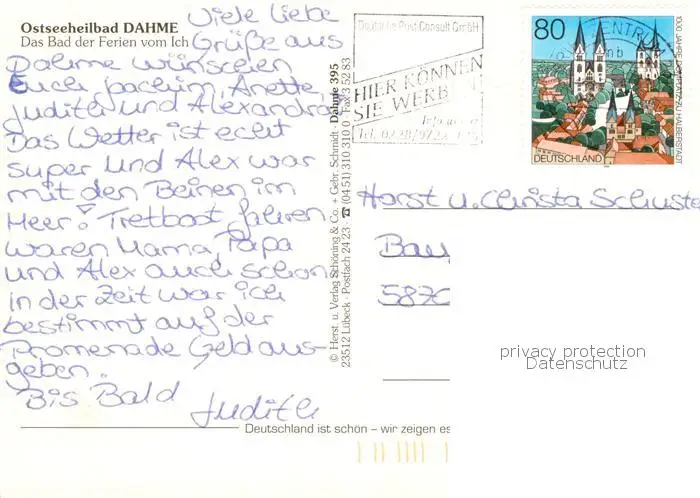 Ostseeheilbad DAHME
Das Bad der Ferien vom Ich
Viele liebe
Grüße aus
Dahme wünschen
Euch Joachim, Anette,
Judith und Alexandra.
Das Wetter ist echt
super und Alex war
mit den Beinen im
Meer! Tretboot fahren
waren Mama, Papa
und Alex auch schon
In der Zeit war ich
bestimmt auf der
Promenade Geld aus-
geben.
Bis Bald
Judith
© Herst. u. Verlag Schöning & Co. + Gebr. Schmidt · Dahme 395
23512 Lübeck · Postfach 24 23 · ☎ (04 51) 310 310 Fax 3 52 83
Deutsche Post Consult GmbH
HIER KÖNNEN
SIE WERBEN
Tel. 0228/
80
DEUTSCHLAND
1000 JAHRE DOMPLATZ ZU HALBERSTADT
Horst u. Christa Schuste
Bau
587
privacy protection
Datenschutz
Deutschland ist schön – wir zeigen es